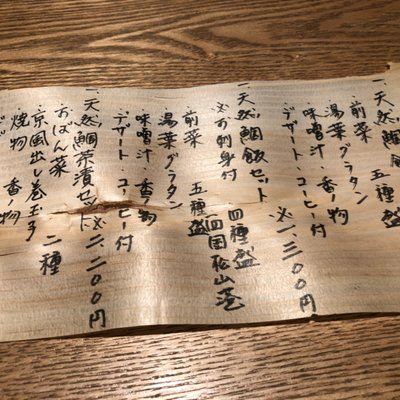 一 天然鯛
・前菜 五種盛
・湯葉グラタン
・味噌汁・香の物
・デザート・コーヒー付
※一、三〇〇円
一 天然鯛飯セット
四種盛
※お刺身付 四国松山港
・前菜 五種盛
・湯葉グラタン
・味噌汁・香の物
・デザート・コーヒー付
※二、二〇〇円
一 天然鯛茶漬セット
・おばん菜 二種
・京風出し巻玉子
・焼物 香の物